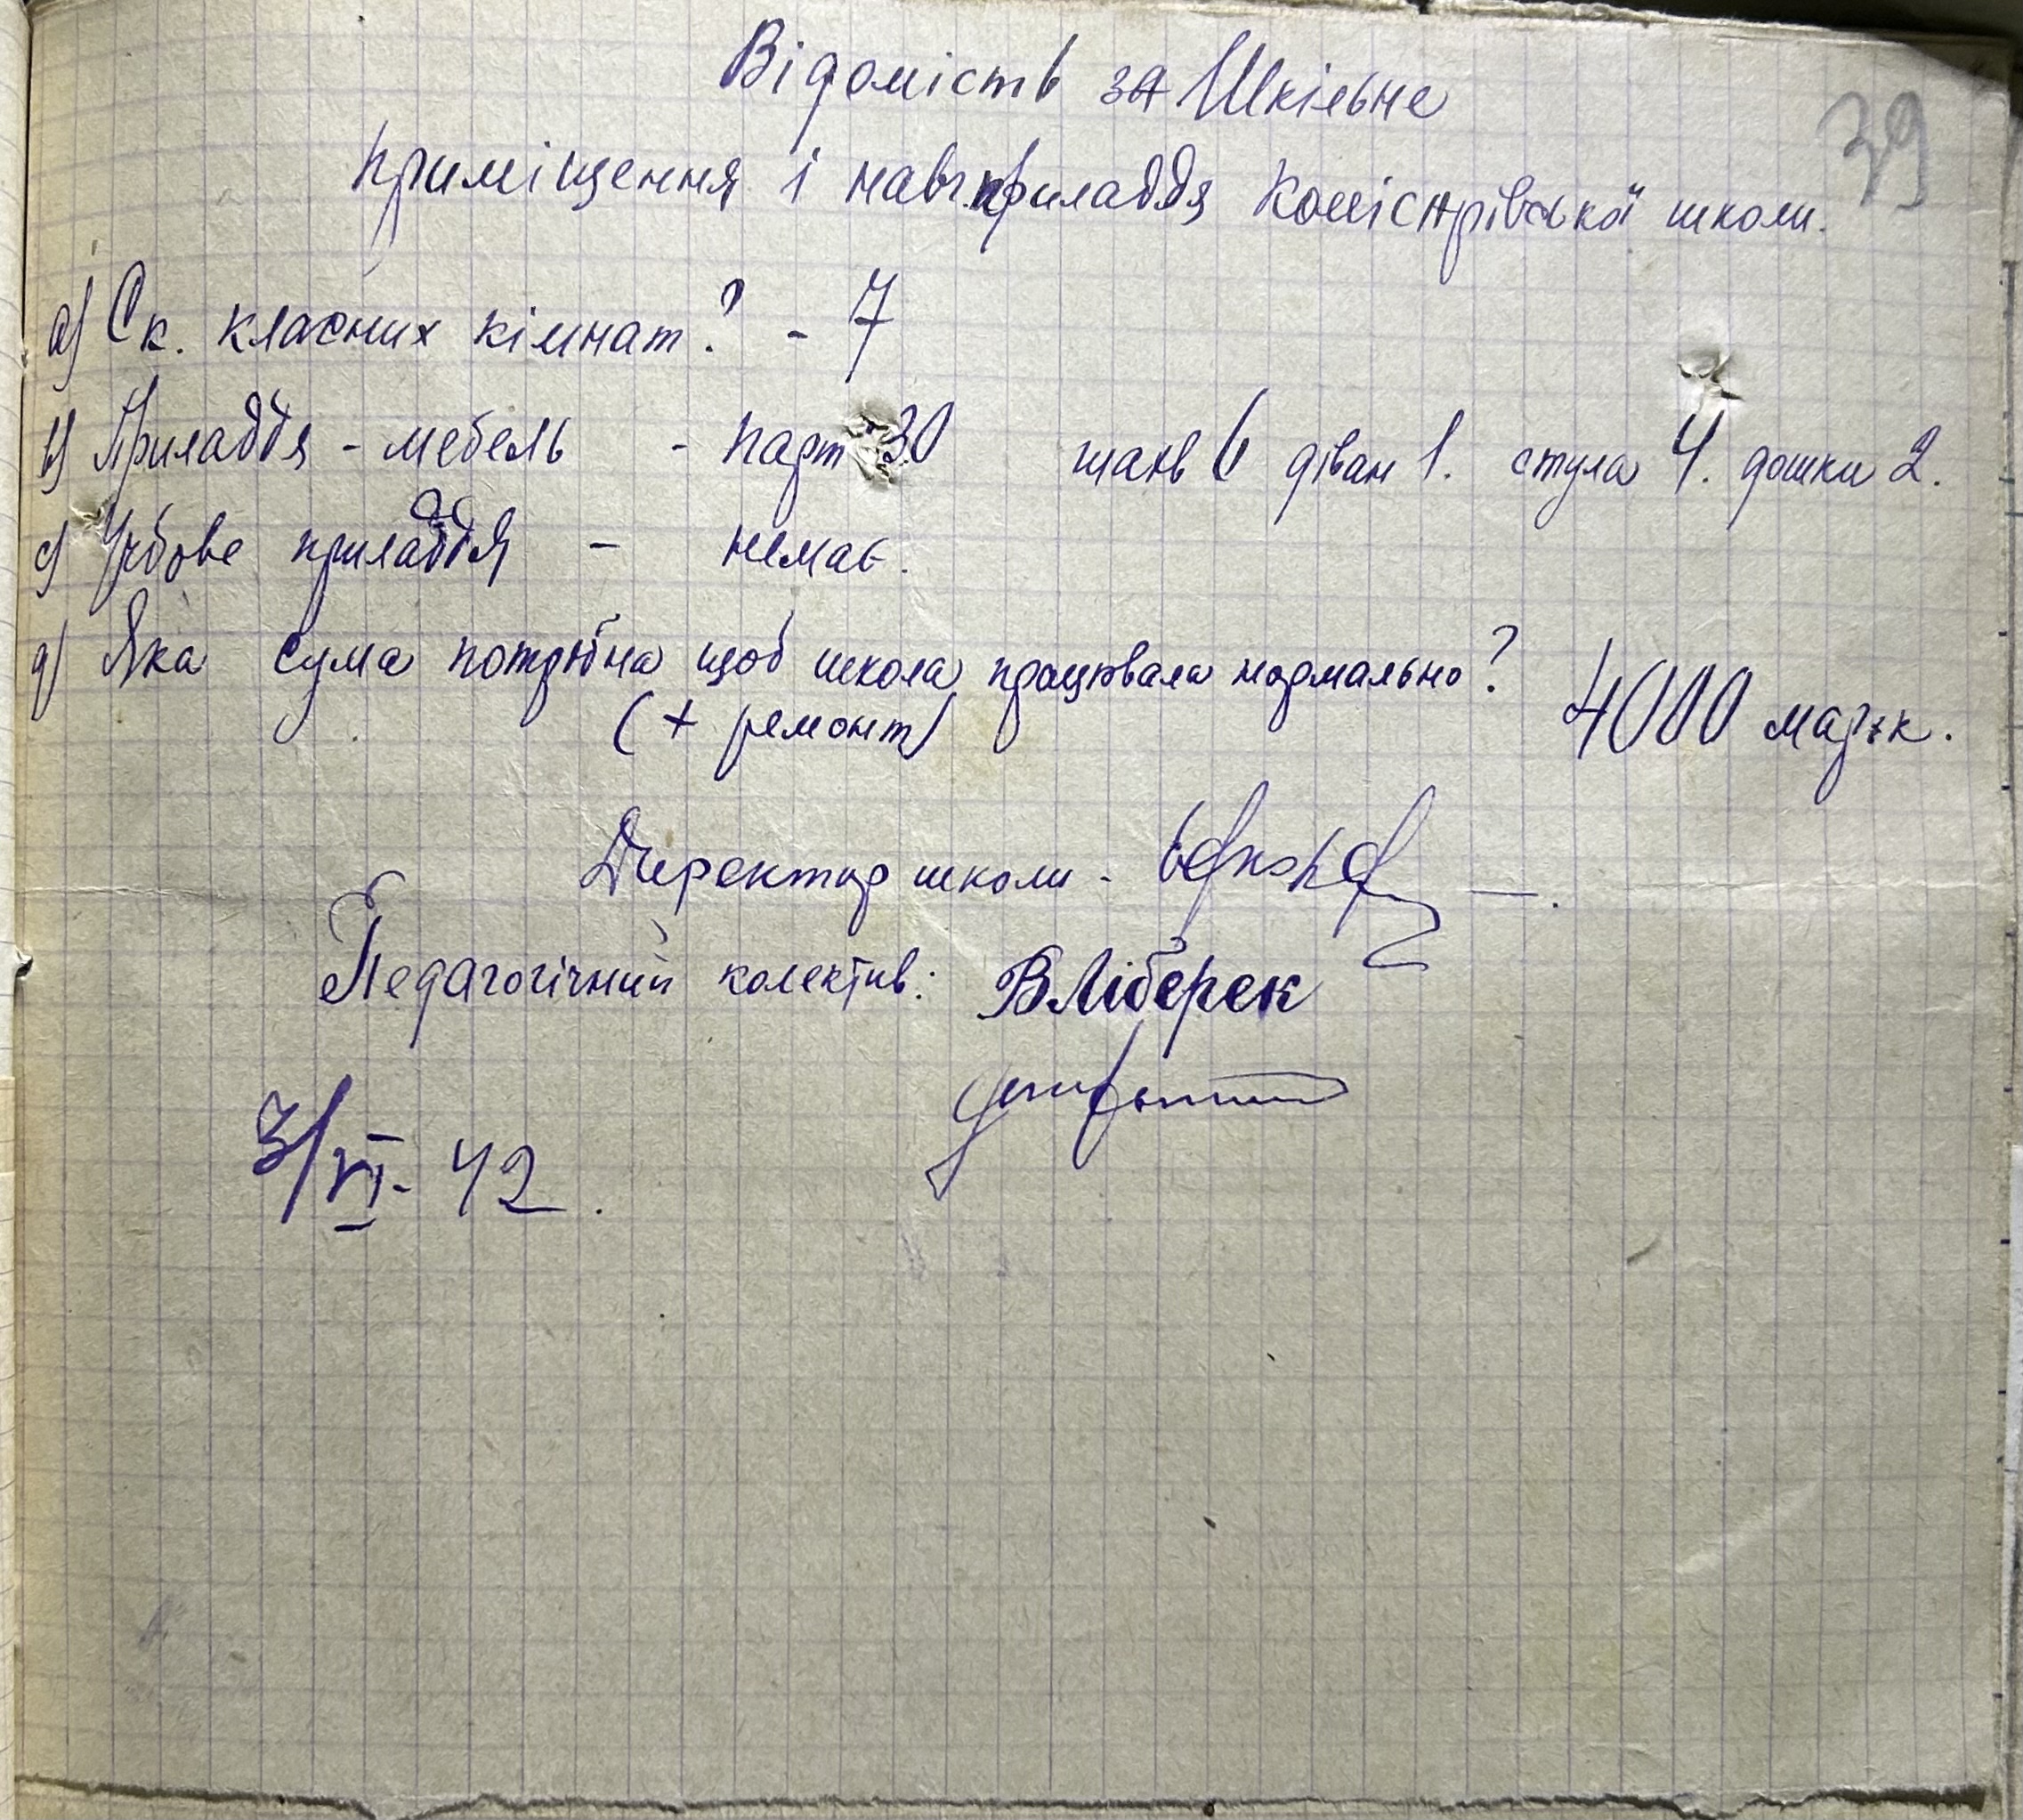 39
Відомість за Шкільне
приміщення і навч.приладдя Комістрівської школи.
a) Ск. класних кімнат? - 7
b) Приладдя - мебель - парт 30 шахв 6 діван 1. стула 4. дошки 2.
c) Учбове приладдя - немає.
d) Яка сума потрібна щоб школа працювала нормально? 4000 марок.
(+ ремонт)
Директор школи -
Педагогічний колектив: ВЛіберек
3/VI - 42.